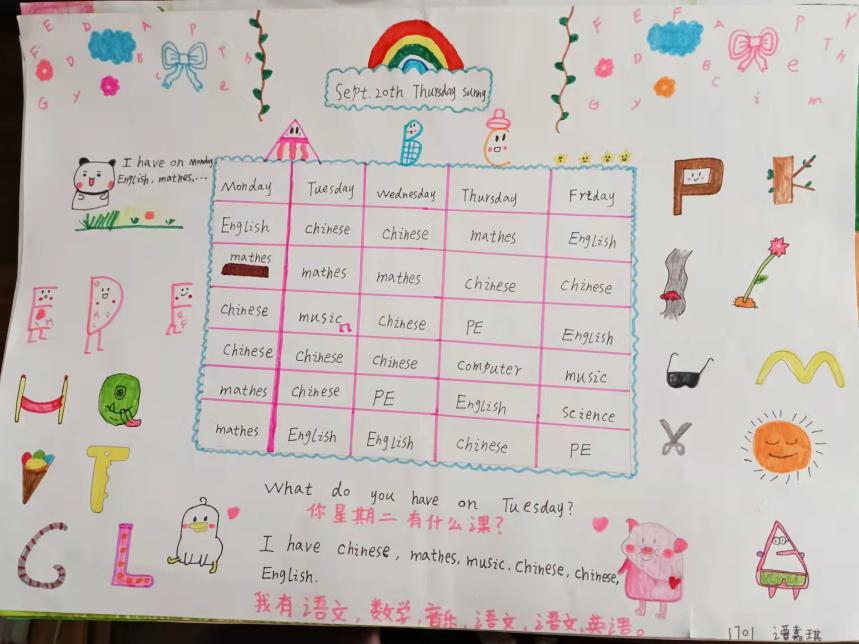 Sept. 20th Thursday sunny
I have on Monday
English, mathes,...
Monday Tuesday Wednesday Thursday Friday
English chinese chinese mathes English
mathes mathes mathes chinese chinese
chinese music chinese PE English
chinese chinese chinese computer music
mathes chinese PE English science
mathes English English chinese PE
What do you have on Tuesday?
你星期二有什么课?
I have chinese, mathes, music. chinese, chinese,
English.
我有语文,数学,音乐,语文,语文,英语。
1701 潘嘉琪